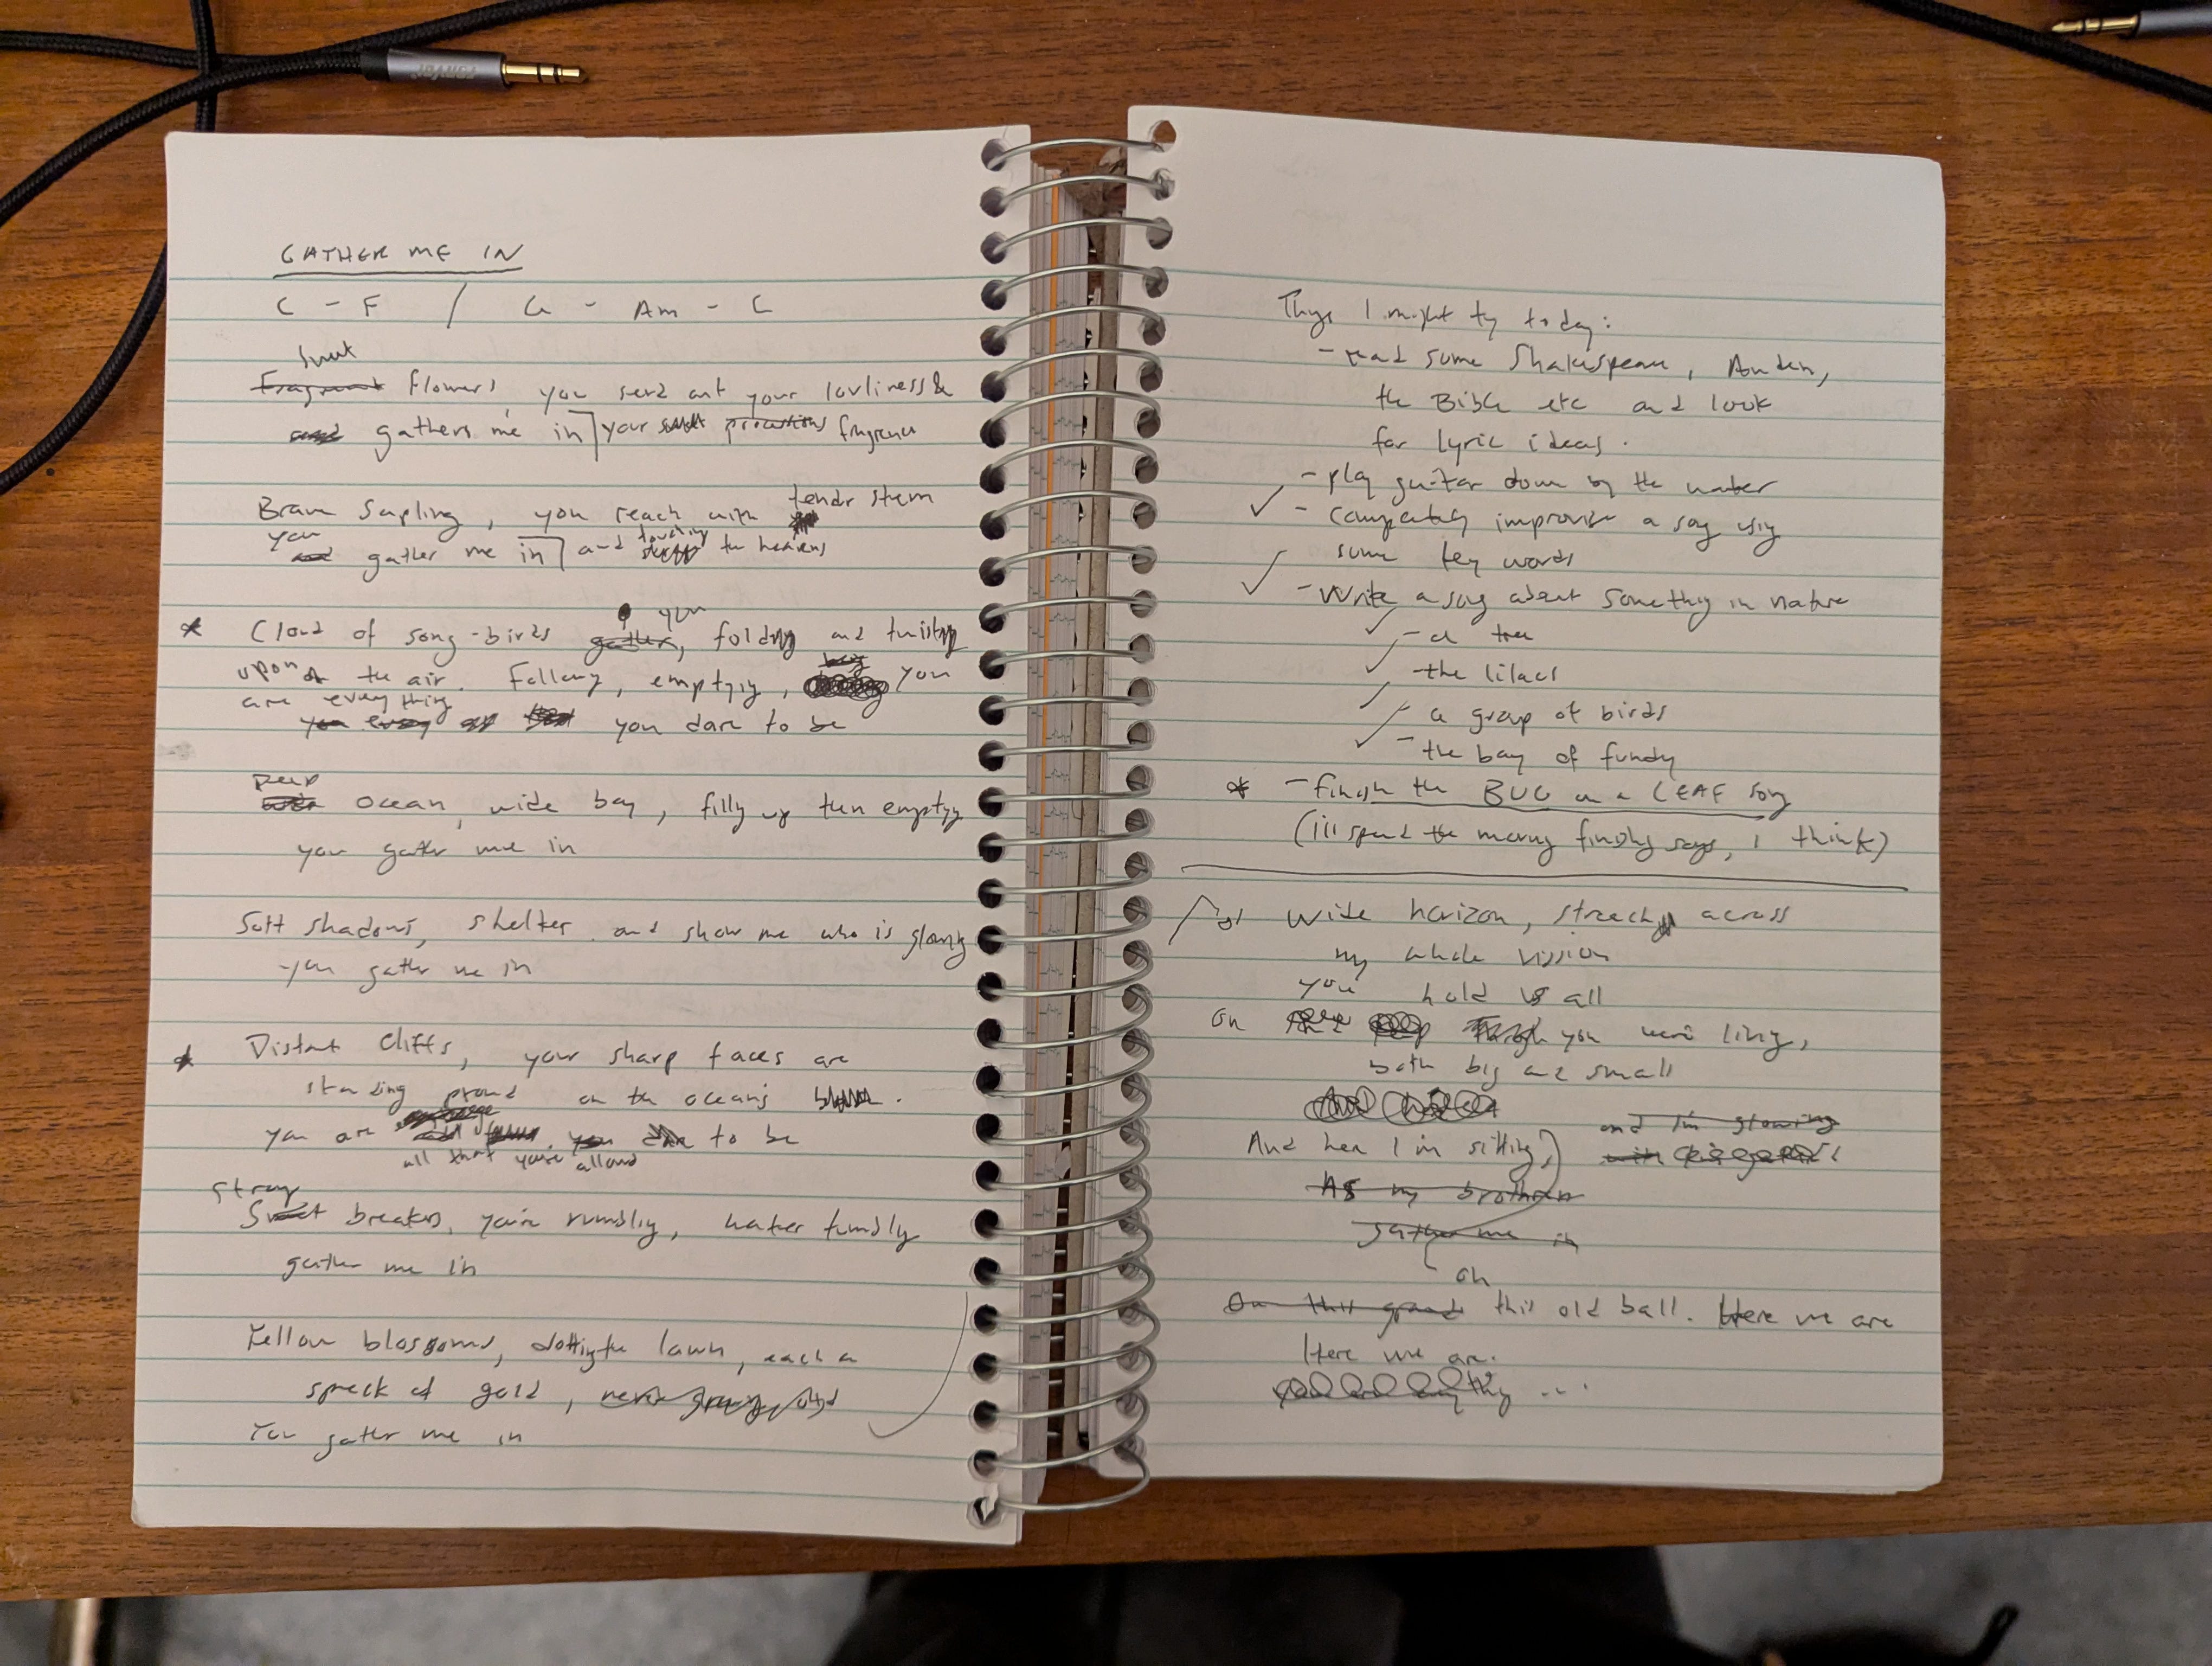 GATHER ME IN
C - F / G - Am - C
Sweet
Fragrant flowers, you send out your lovliness &
and gathers me in your sweet precious fragrence
tender stem
Brave sapling, you reach with
you touching
and gather me in and the heavens
you
* Cloud of song-birds gather, folding and twisting
upon the air. Falling, emptying, you
are everything
you every you dare to be
Deep
wide ocean, wide bay, filling up then emptying
you gather me in
Soft shadows, shelter and show me who is glowing
you gather me in
* Distant cliffs, your sharp faces are
standing proud on the oceans
you are you dare to be
all that you're allowed
strong
Sweet breakers, you're rumbling, water tumbling
gather me in
Yellow blossoms, dotting the lawn, each a
speck of gold, never growing old
You gather me in
Things I might try today:
- read some Shakespeare, Auden,
the Bible etc and look
for lyric ideas.
- play guitar down by the water
- completely improvise a song using
some key words
- Write a song about something in nature
- a tree
- the lilacs
- a group of birds
- the bay of fundy
* - finish the BUG on a LEAF song
(i'll spend the morning finishing songs, I think)
Wide horizon, streching across
my whole vission
you hold us all
on you were living,
both big and small
and I'm glowing
And here I'm sitting, with
As my brothers
gather me in
on
On this grand this old ball. Here we are
Here we are.
...
Fonyor